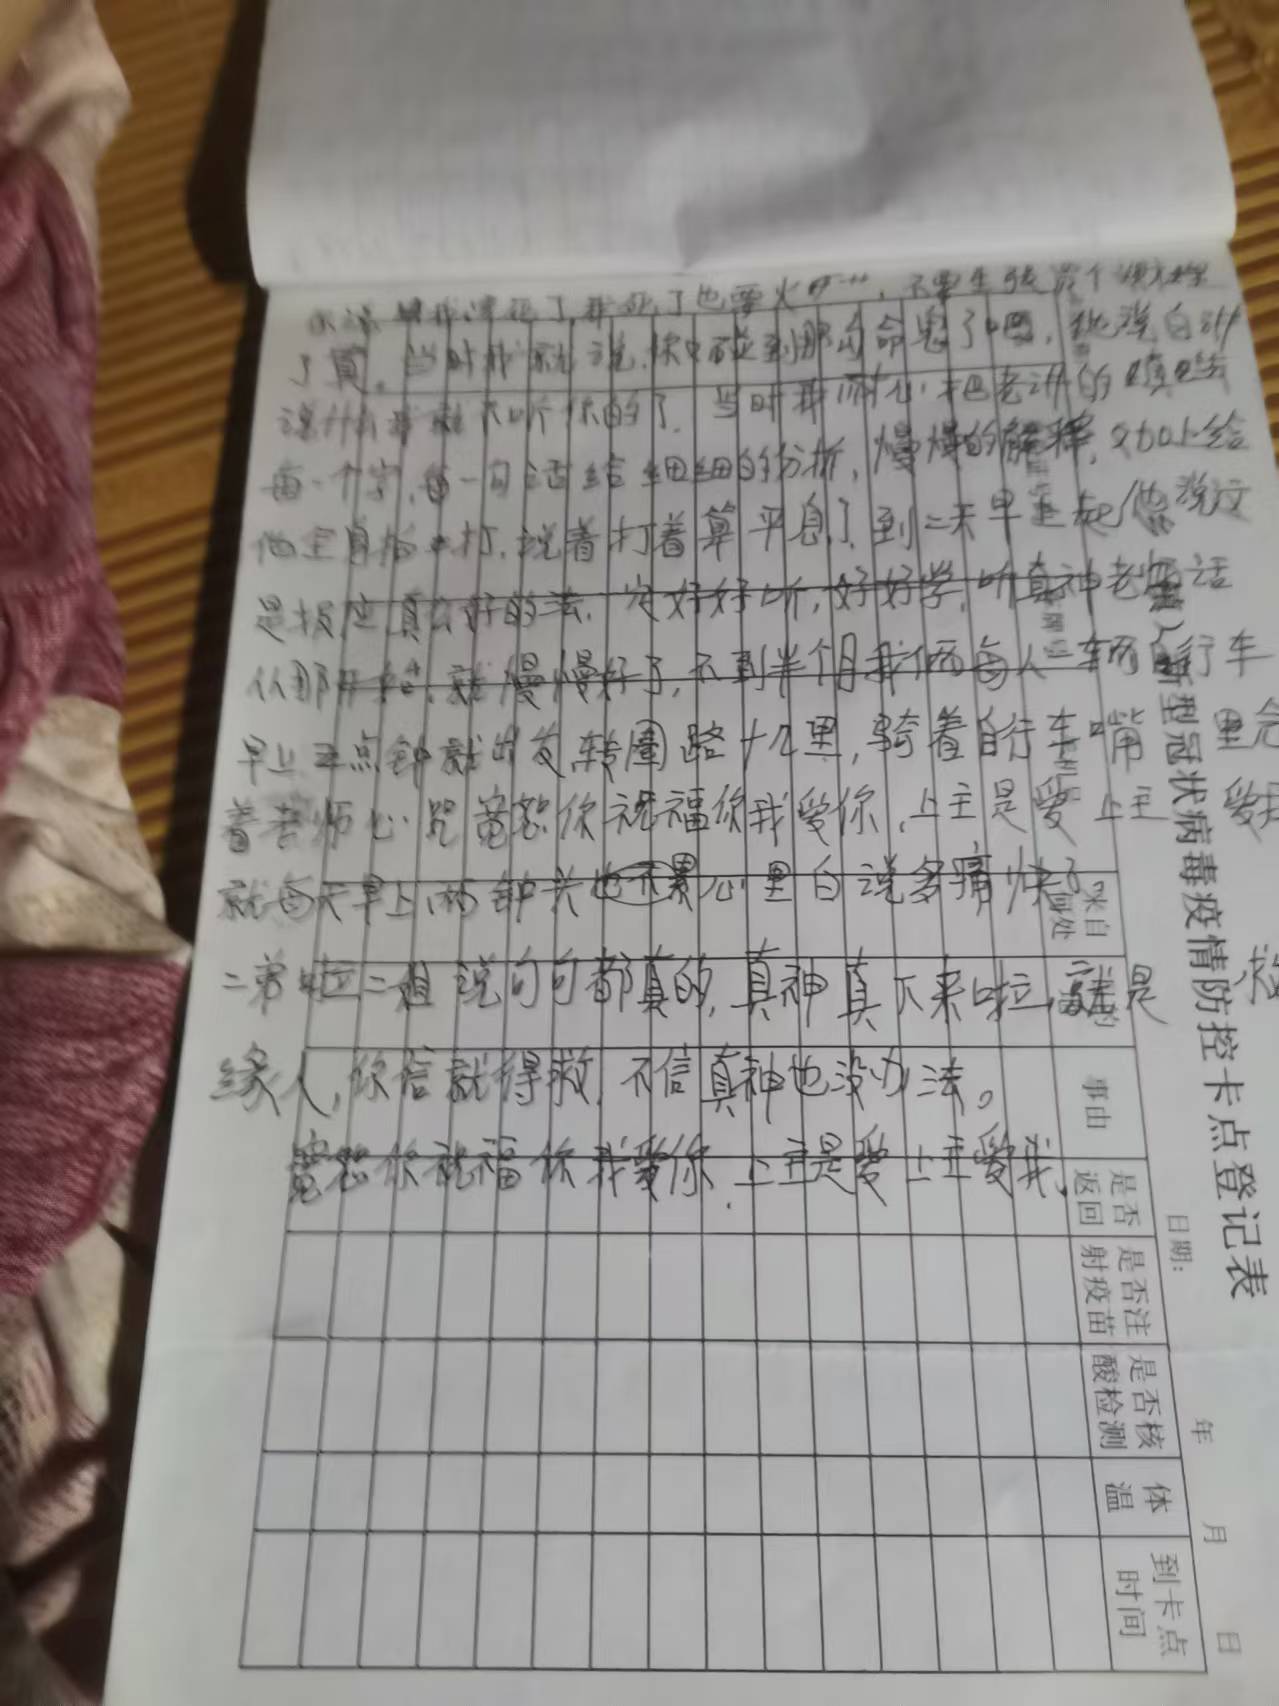 死了我死了也要火
了真。当时我就说,你碰到那命鬼了吧,他说自讲
说什么我就不听你的了。当时我耐心把老讲的
每一个字,每一句话给细细的分析,慢慢的解释,又加上给
他全身拍打,说着打着算平息了,到二天早起他说这
是报应真么好的法,一定好好听,好好学,听真神老师话
从那开始,就慢慢好了,不到半个月我们俩每人一辆自行车
早上五点钟就出发,转圈路十几里,骑着自行车嘴里
着老师心咒宽恕你祝福你我爱你,上主是爱上主爱我
就每天早上两钟头也不累心里白说多痛快
二弟啦二姐说句句都真的,真神真下来啦,就是
缘人,你信就得救,不信真神也没办法。
宽恕你祝福你我爱你,上主是爱上主爱我,
新型冠状病毒疫情防控卡点登记表
日期: 年 月 日
来自何处
事由
是否返回
是否注射疫苗
是否核酸检测
体温
到卡点时间